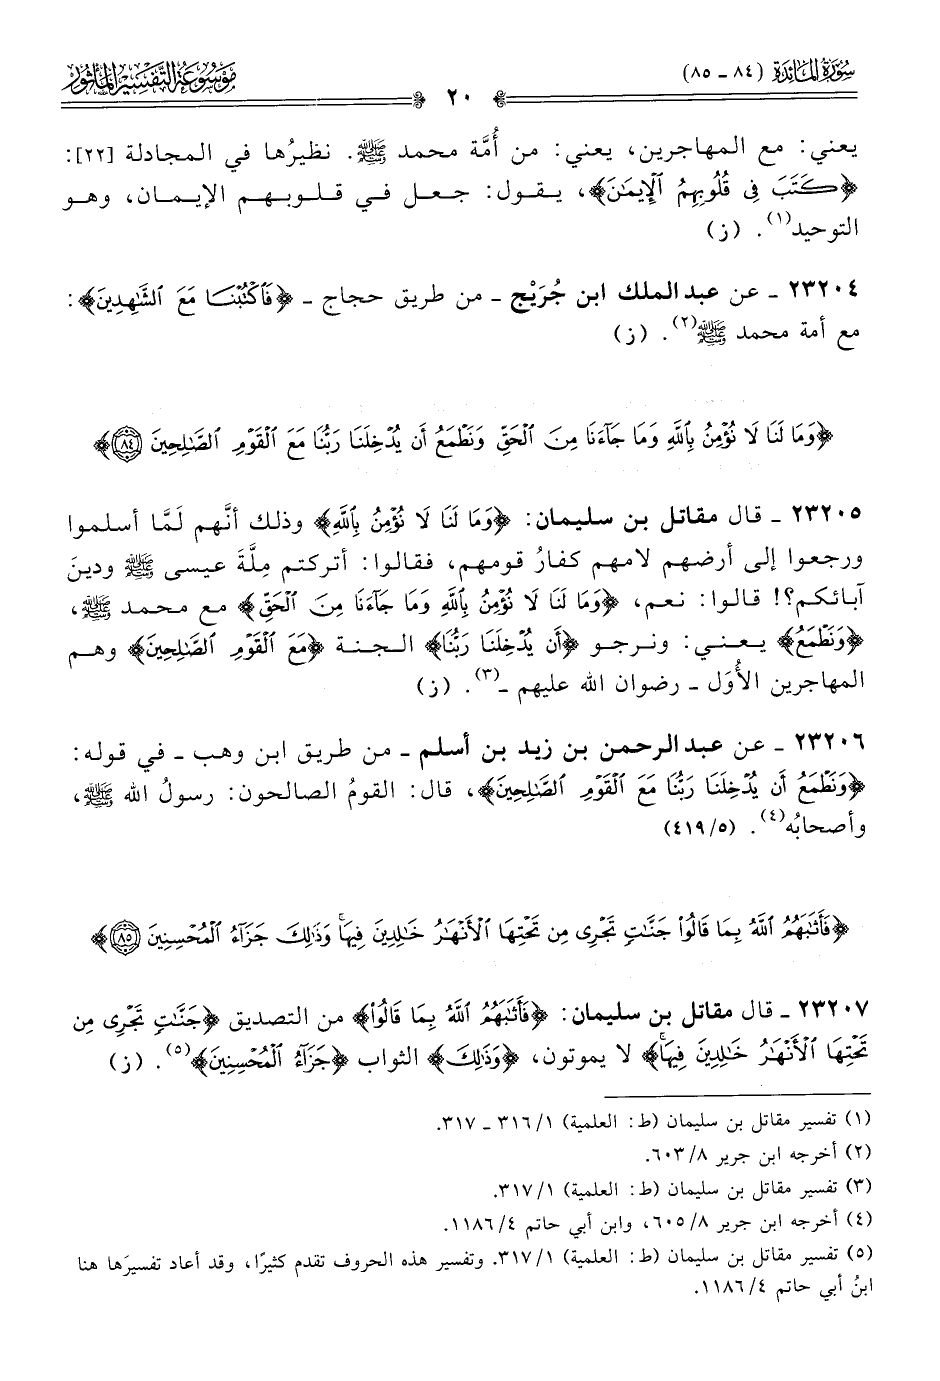 سورة المائدة (٨٤ - ٨٥)
٢٠
موسوعة التفسير المأثور
يعني: مع المهاجرين، يعني: من أُمَّة محمد ﷺ. نظيرُها في المجادلة [٢٢]:
﴿كَتَبَ فِى قُلُوبِهِمُ ٱلْإِيمَٰنَ﴾، يقول: جعل في قلوبهم الإيمان، وهو
التوحيد(١). (ز)
٢٣٢٠٤ - عن عبد الملك ابن جُرَيْج - من طريق حجاج - ﴿فَٱكْتُبْنَا مَعَ ٱلشَّٰهِدِينَ﴾:
مع أمة محمد ﷺ(٢). (ز)
﴿وَمَا لَنَا لَا نُؤْمِنُ بِٱللَّهِ وَمَا جَآءَنَا مِنَ ٱلْحَقِّ وَنَطْمَعُ أَن يُدْخِلَنَا رَبُّنَا مَعَ ٱلْقَوْمِ ٱلصَّٰلِحِينَ ٨٤﴾
٢٣٢٠٥ - قال مقاتل بن سليمان: ﴿وَمَا لَنَا لَا نُؤْمِنُ بِٱللَّهِ﴾ وذلك أنَّهم لَمَّا أسلموا
ورجعوا إلى أرضهم لامهم كفارُ قومهم، فقالوا: أتركتم مِلَّةَ عيسى ﷺ ودينَ
آبائكم؟! قالوا: نعم، ﴿وَمَا لَنَا لَا نُؤْمِنُ بِٱللَّهِ وَمَا جَآءَنَا مِنَ ٱلْحَقِّ﴾ مع محمد ﷺ،
﴿وَنَطْمَعُ﴾ يعني: ونرجو ﴿أَن يُدْخِلَنَا رَبُّنَا﴾ الجنة ﴿مَعَ ٱلْقَوْمِ ٱلصَّٰلِحِينَ﴾ وهم
المهاجرين الأُوَل - رضوان الله عليهم -(٣). (ز)
٢٣٢٠٦ - عن عبد الرحمن بن زيد بن أسلم - من طريق ابن وهب - في قوله:
﴿وَنَطْمَعُ أَن يُدْخِلَنَا رَبُّنَا مَعَ ٱلْقَوْمِ ٱلصَّٰلِحِينَ﴾، قال: القومُ الصالحون: رسولُ الله ﷺ،
وأصحابُه(٤). (٥/ ٤١٩)
﴿فَأَثَٰبَهُمُ ٱللَّهُ بِمَا قَالُوا۟ جَنَّٰتٍ تَجْرِى مِن تَحْتِهَا ٱلْأَنْهَٰرُ خَٰلِدِينَ فِيهَا ۚ وَذَٰلِكَ جَزَآءُ ٱلْمُحْسِنِينَ ٨٥﴾
٢٣٢٠٧ - قال مقاتل بن سليمان: ﴿فَأَثَٰبَهُمُ ٱللَّهُ بِمَا قَالُوا۟﴾ من التصديق ﴿جَنَّٰتٍ تَجْرِى مِن
تَحْتِهَا ٱلْأَنْهَٰرُ خَٰلِدِينَ فِيهَا ۚ﴾ لا يموتون، ﴿وَذَٰلِكَ﴾ الثواب ﴿جَزَآءُ ٱلْمُحْسِنِينَ﴾(٥). (ز)
(١) تفسير مقاتل بن سليمان (ط: العلمية) ١/ ٣١٦ - ٣١٧.
(٢) أخرجه ابن جرير ٨/ ٦٠٣.
(٣) تفسير مقاتل بن سليمان (ط: العلمية) ١/ ٣١٧.
(٤) أخرجه ابن جرير ٨/ ٦٠٥، وابن أبي حاتم ٤/ ١١٨٦.
(٥) تفسير مقاتل بن سليمان (ط: العلمية) ١/ ٣١٧. وتفسير هذه الحروف تقدم كثيرًا، وقد أعاد تفسيرَها هنا
ابنُ أبي حاتم ٤/ ١١٨٦.